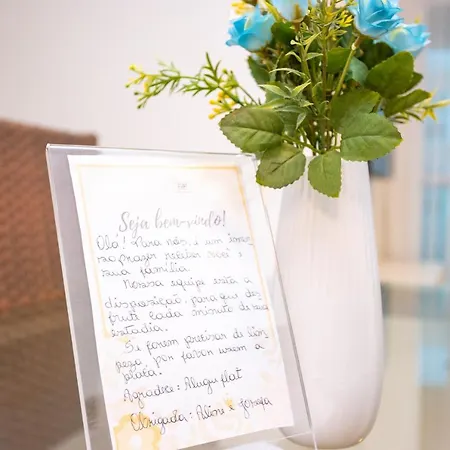 Seja bem-vindo!
Olá! Para nós, é um imen
so prazer receber você e
sua família.
Nossa equipe está a
disposição, para que des
frute cada minuto de sua
estadia.
Se forem precisar de lim
peza por favor usem a
placa.
Agradece: Alugu flat
Obrigada: Aline e